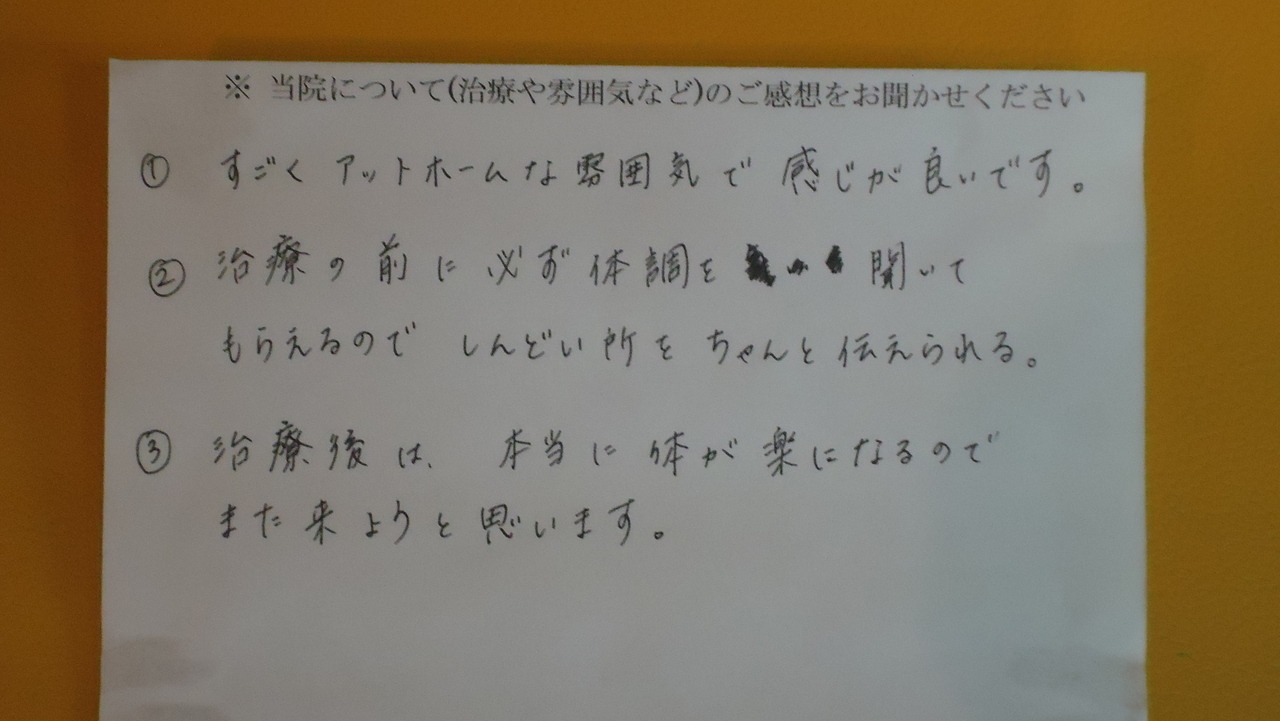 ※ 当院について(治療や雰囲気など)のご感想をお聞かせください
① すごくアットホームな雰囲気で感じが良いです。
② 治療の前に必ず体調を聞いて
もらえるので しんどい所をちゃんと伝えられる。
③ 治療後は、本当に体が楽になるので
また来ようと思います。